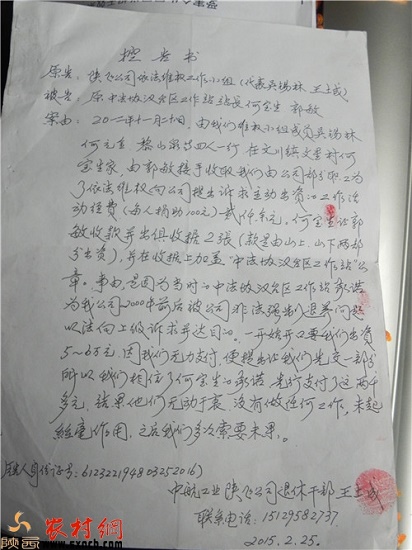 控告书
原告：陕飞公司依法维权工作小组（代表吴锡林 王土成）
被告：原中法协汉台区工作站站长何宝生 郭敏
案由：2012年十一月二十日，由我们维权小组成员吴锡林
何元直 黎山 等四人一行 在文川镇文里村何
宝生家，由郭敏接手收取我们由公司部分职工为
了依法维权向公司提出诉求主动出资的工作活
动经费（每人捐助100元）贰仟余元，何宝生让郭
敏收款并出俱收据2张（款是由山上、山下两部
分出资），并在收据上加盖"中法协汉台区工作站"公
章。事由，是因为当时的中法协汉台区工作站承诺
为我公司2000年前后被公司非法强制退养问题
以法向上级诉求并达目的。一开始开口要我们出资
5～6万元，因我们无力支付，便提出让我们先交一部分
所以我们相信了何宝生的承诺，先行支付了这两千
多元，结果他们无动于衷，没有做任何工作，未起
丝毫作用，之后我们多次索要未果。
身份证号：612322194803252016）
中航工业陕飞公司退休干部 王土成
联系电话：15129582737
2015.2.25.
陕西农村網
www.sxncb.com